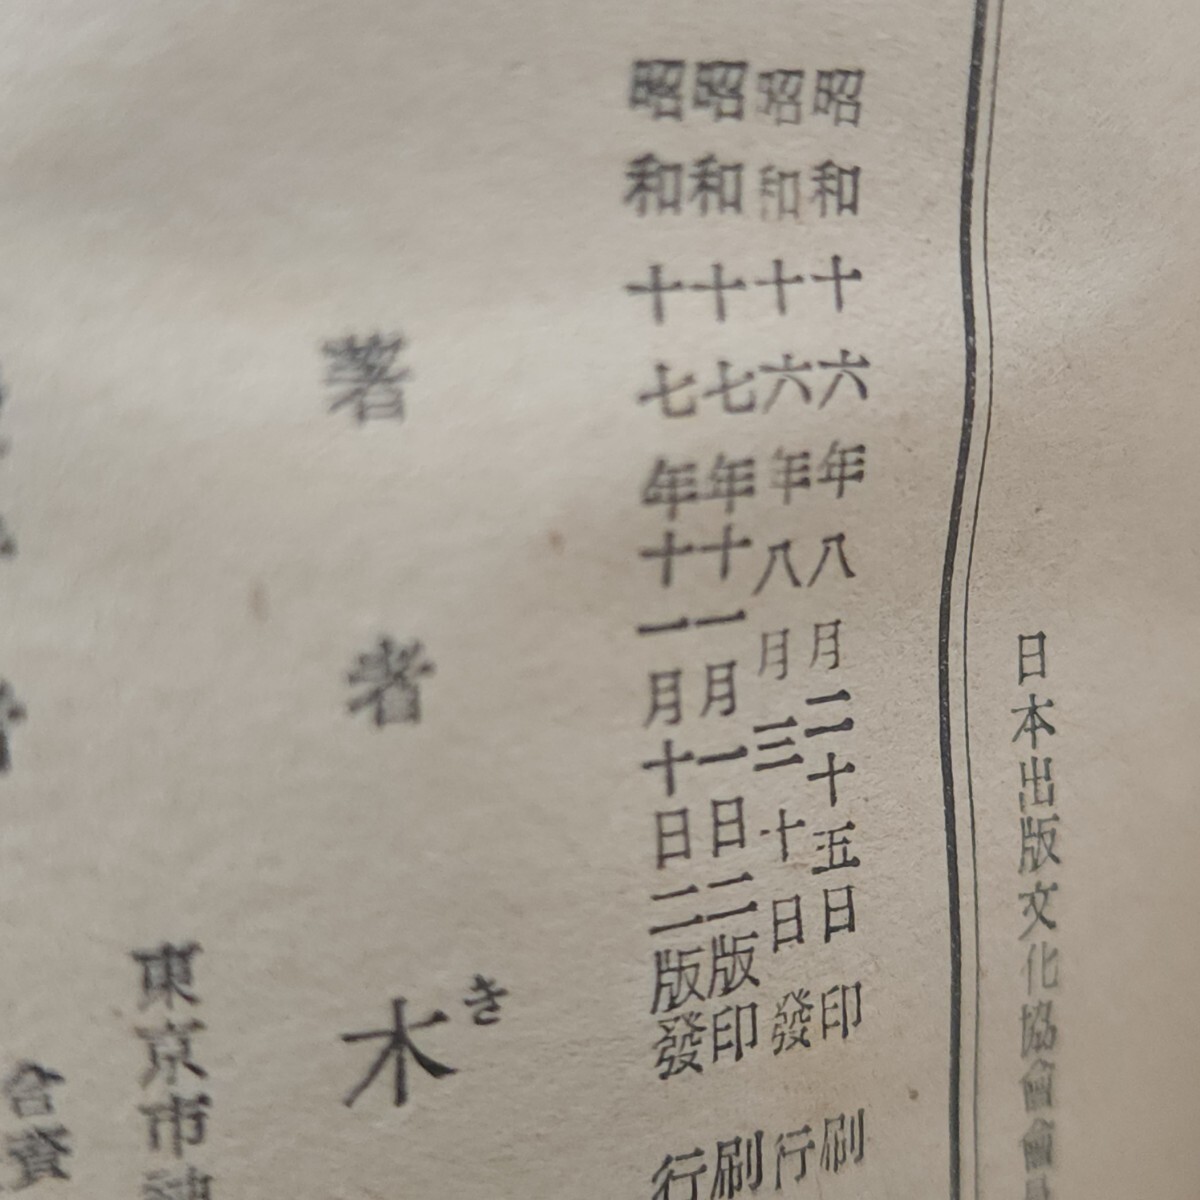 日本出版文化協會會員
昭和十六年八月二十五日印刷
昭和十六年八月三十日發行
昭和十七年十一月一日二版印刷
昭和十七年十一月十日二版發行
著者
き
木
東京市神
合資